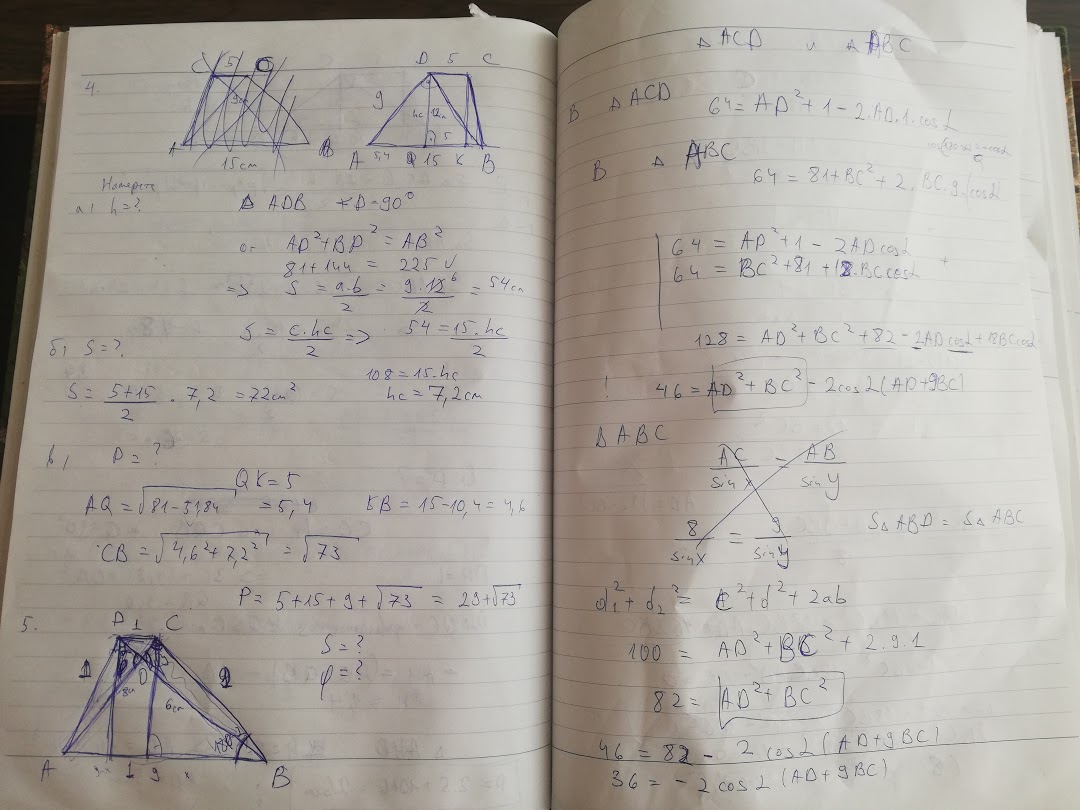 4.
C 5
A B
15cm
D 5 C
9
hc 12cm
5
A 5,4 Q 15 K B
Намерете
а) h = ?
△ ADB ∢D = 90°
AD² + BD² = AB²
81 + 144 = 225 √
=> S = a.b/2 = 9.12⁶/2 = 54cm
S = c.hc/2 => 54 = 15.hc/2
108 = 15.hc
hc = 7,2cm
б) S = ?
S = 5+15/2 . 7,2 = 72cm²
в) P = ?
QK = 5
AQ = √81-51,84 = 5,4 KB = 15-10,4 = 4,6
CB = √4,6²+7,2² = √73
P = 5+15+9+√73 = 29+√73
5.
D 1 C
O
8cm
6cm
A 1 9 x B
S = ?
φ = ?
△ ACD и △ ABC
В △ ACD
64 = AD² + 1 - 2.AD.1.cosα
В △ ABC
64 = 81 + BC² + 2.BC.9.cosα
64 = AD² + 1 - 2ADcosα
+
64 = BC² + 81 + 18.BCcosα
128 = AD² + BC² + 82 - 2ADcosα + 18BCcosα
! 46 = AD² + BC² - 2cosα(AD+9BC)
△ ABC
AC/sinx - AB/siny
8/sinx = 9/siny
S△ABD = S△ABC
d₁² + d₂² = c² + d² + 2ab
100 = AD² + BC² + 2.9.1
82 = AD² + BC²
46 = 82 - 2cosα(AD+9BC)
36 = -2cosα(AD+9BC)